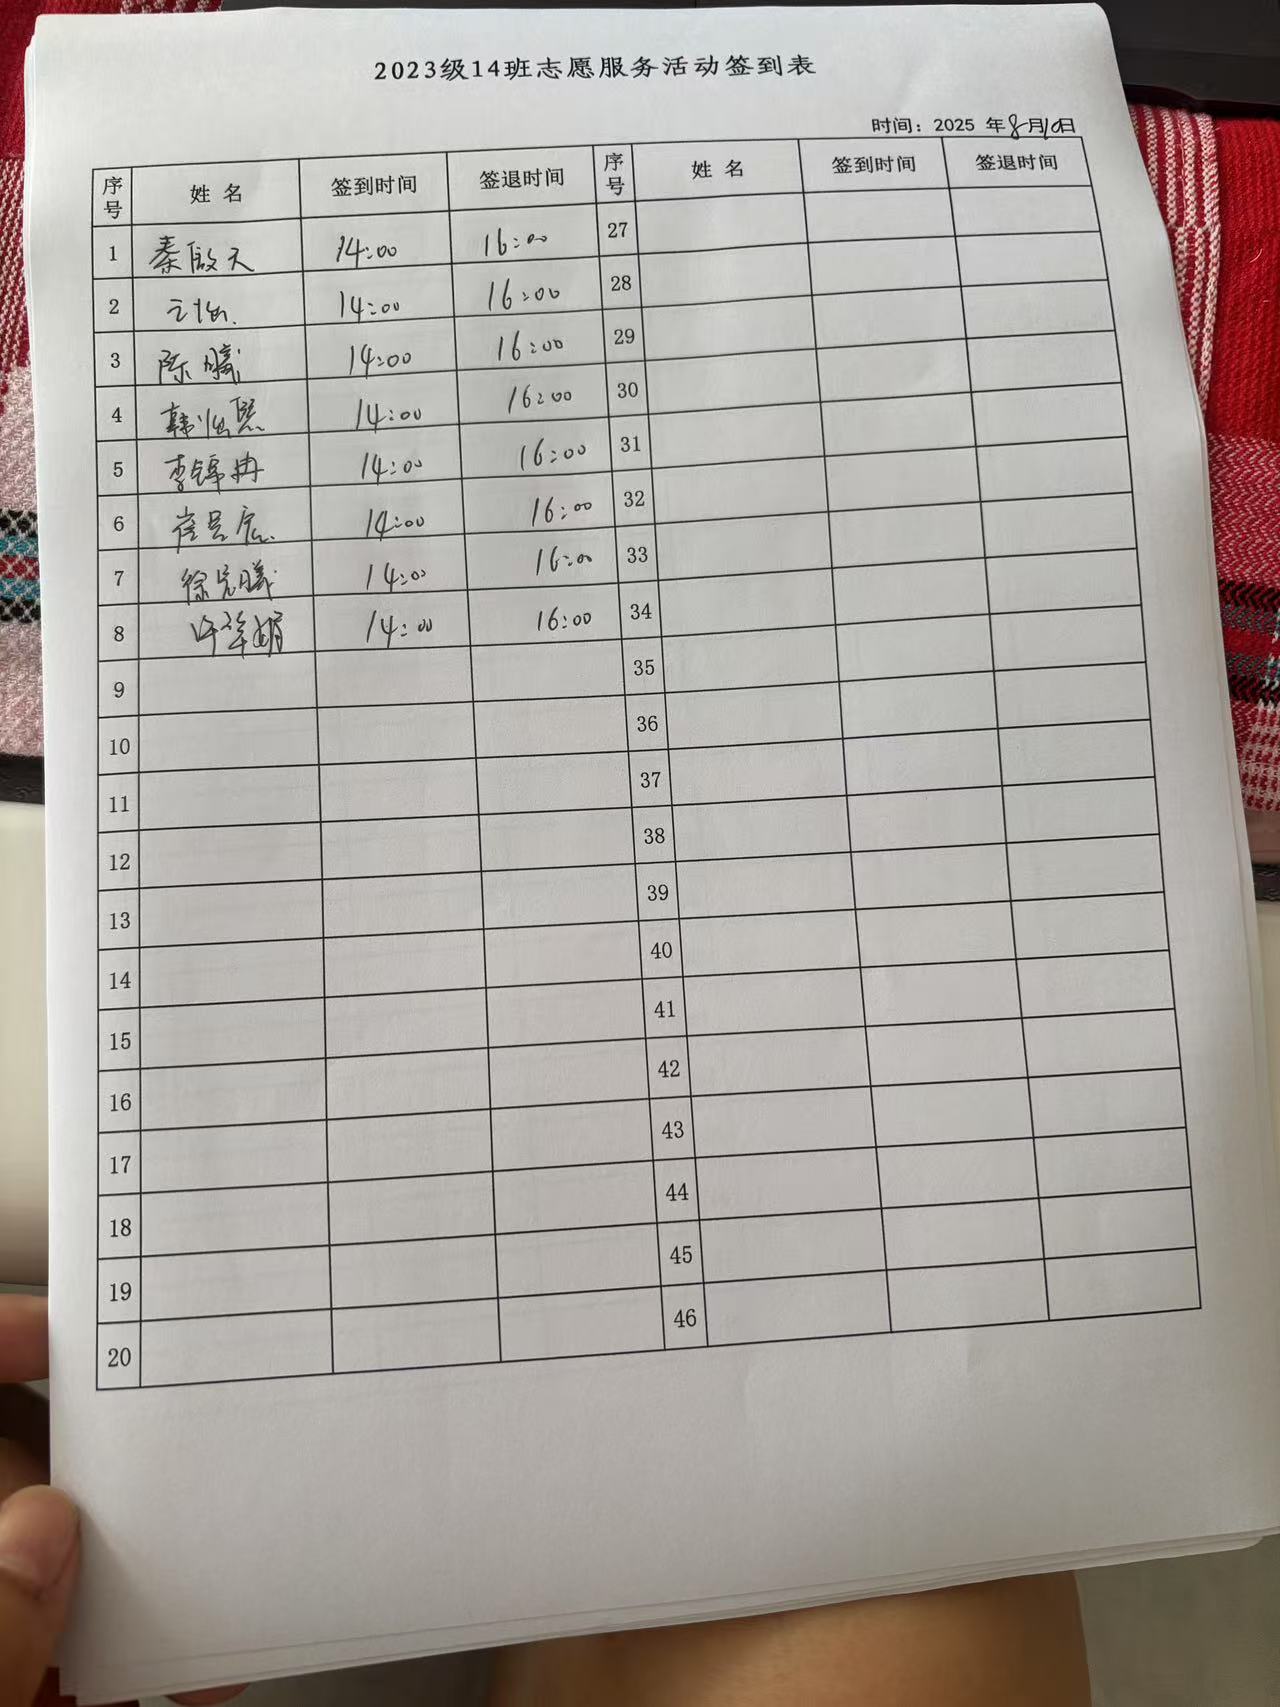 2023级14班志愿服务活动签到表
时间：2025 年8月10日
序号 姓 名 签到时间 签退时间 序号 姓 名 签到时间 签退时间
1 秦啟天 14:00 16:00 27
2 14:00 16:00 28
3 陈曦 14:00 16:00 29
4 韩 14:00 16:00 30
5 李锦冉 14:00 16:00 31
6 崔昊宸 14:00 16:00 32
7 徐 曦 14:00 16:00 33
8 许 娟 14:00 16:00 34
9 35
10 36
11 37
12 38
13 39
14 40
15 41
16 42
17 43
18 44
19 45
20 46